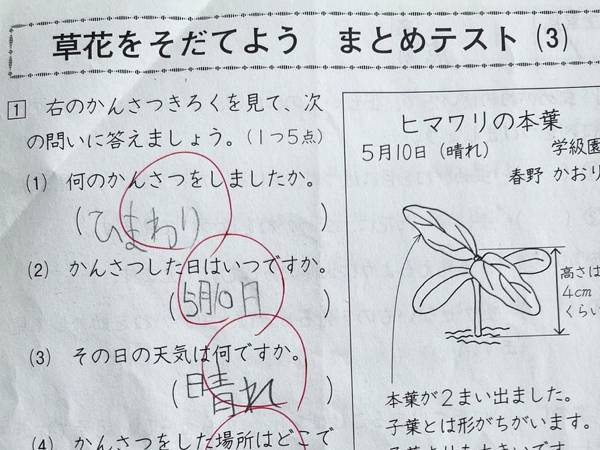 草花をそだてよう まとめテスト(3)
1 右のかんさつきろくを見て、次
の問いに答えましょう。(1つ5点)
(1) 何のかんさつをしましたか。
(ひまわり)
(2) かんさつした日はいつですか。
(5月10日)
(3) その日の天気は何ですか。
(晴れ)
(4) かんさつをした場所はどこで
ヒマワリの本葉
5月10日(晴れ) 学級園
春野 かおり
高さは
4cm
くらい
本葉が2まい出ました。
子葉とは形がちがいます。